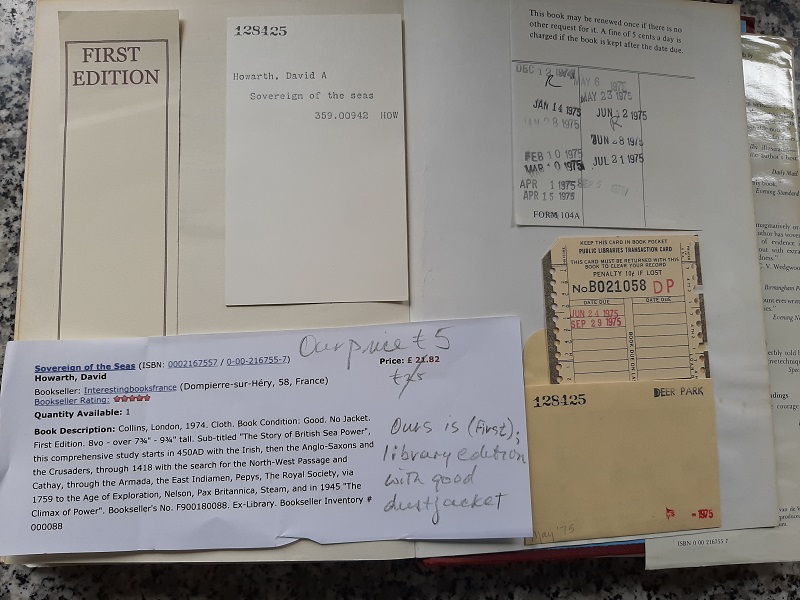 FIRST
EDITION
128425
Howarth, David A
Sovereign of the seas
359.00942 HOW
This book may be renewed once if there is no
other request for it. A fine of 5 cents a day is
charged if the book is kept after the date due.
DEC 12 1974
R
JAN 14 1975
JAN 28 1975
FEB 10 1975
MAR 10 1975
APR 1 1975
APR 15 1975
MAY 6
MAY 23 1975
JUN 12 1975
R
JUN 8 1975
JUL 21 1975
SEP 5
FORM 104A
KEEP THIS CARD IN BOOK POCKET
PUBLIC LIBRARIES TRANSACTION CARD
THIS CARD MUST BE RETURNED WITH THIS
BOOK TO CLEAR YOUR RECORD
PENALTY 10¢ IF LOST
No B021058 DP
DATE DUE DATE DUE
JUN 24 1975
SEP 29 1975
128425 DEER PARK
- 1975
May '75
Our price £5
Sovereign of the Seas (ISBN: 0002167557 / 0-00-216755-7)
Price: £ 21.82
Howarth, David
Bookseller: Interestingbooksfrance (Dompierre-sur-Héry, 58, France)
Bookseller Rating:
Quantity Available: 1
Book Description: Collins, London, 1974. Cloth. Book Condition: Good. No Jacket.
First Edition. 8vo - over 7¾" - 9¾" tall. Sub-titled "The Story of British Sea Power",
this comprehensive study starts in 450AD with the Irish, then the Anglo-Saxons and
the Crusaders, through 1418 with the search for the North-West Passage and
Cathay, through the Armada, the East Indiamen, Pepys, The Royal Society, via
1759 to the Age of Exploration, Nelson, Pax Britannica, Steam, and in 1945 "The
Climax of Power". Bookseller's No. F900180088. Ex-Library. Bookseller Inventory #
000088
Ours is (first);
library edition
with good
dustjacket
Daily Mail
this book.
Evening Standard
C. V. Wedgwood
ISBN 0 00 216755 7